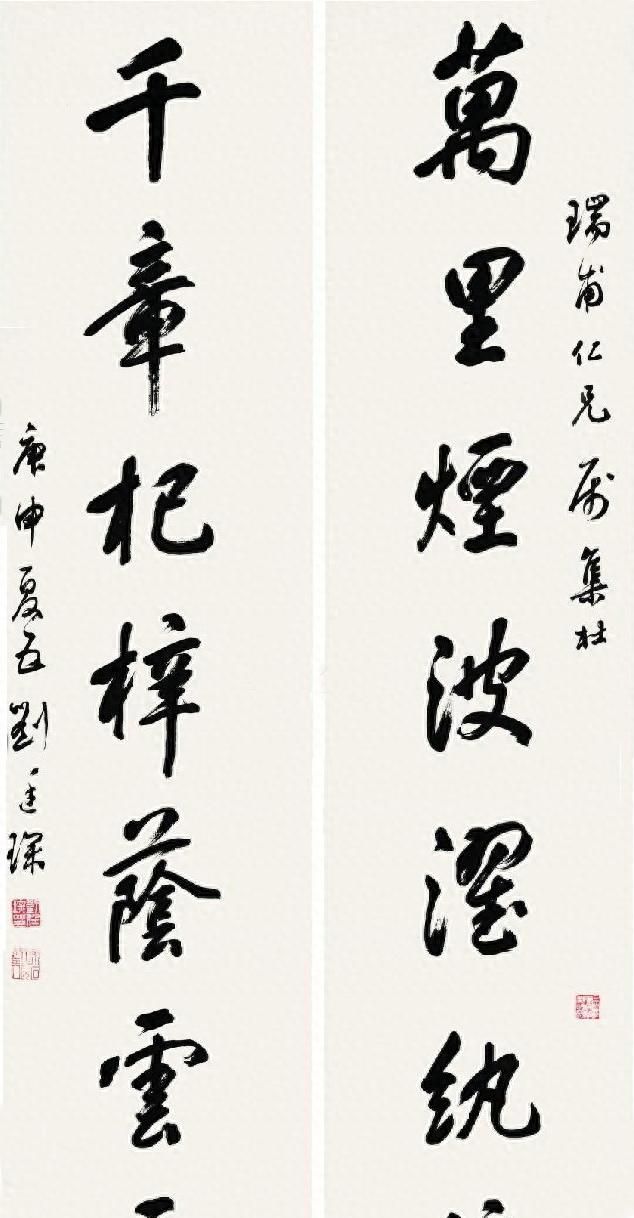 瑞甫仁兄属集杜
萬里煙波濯紈
千章杞梓蔭雲
庚申夏五劉廷琛